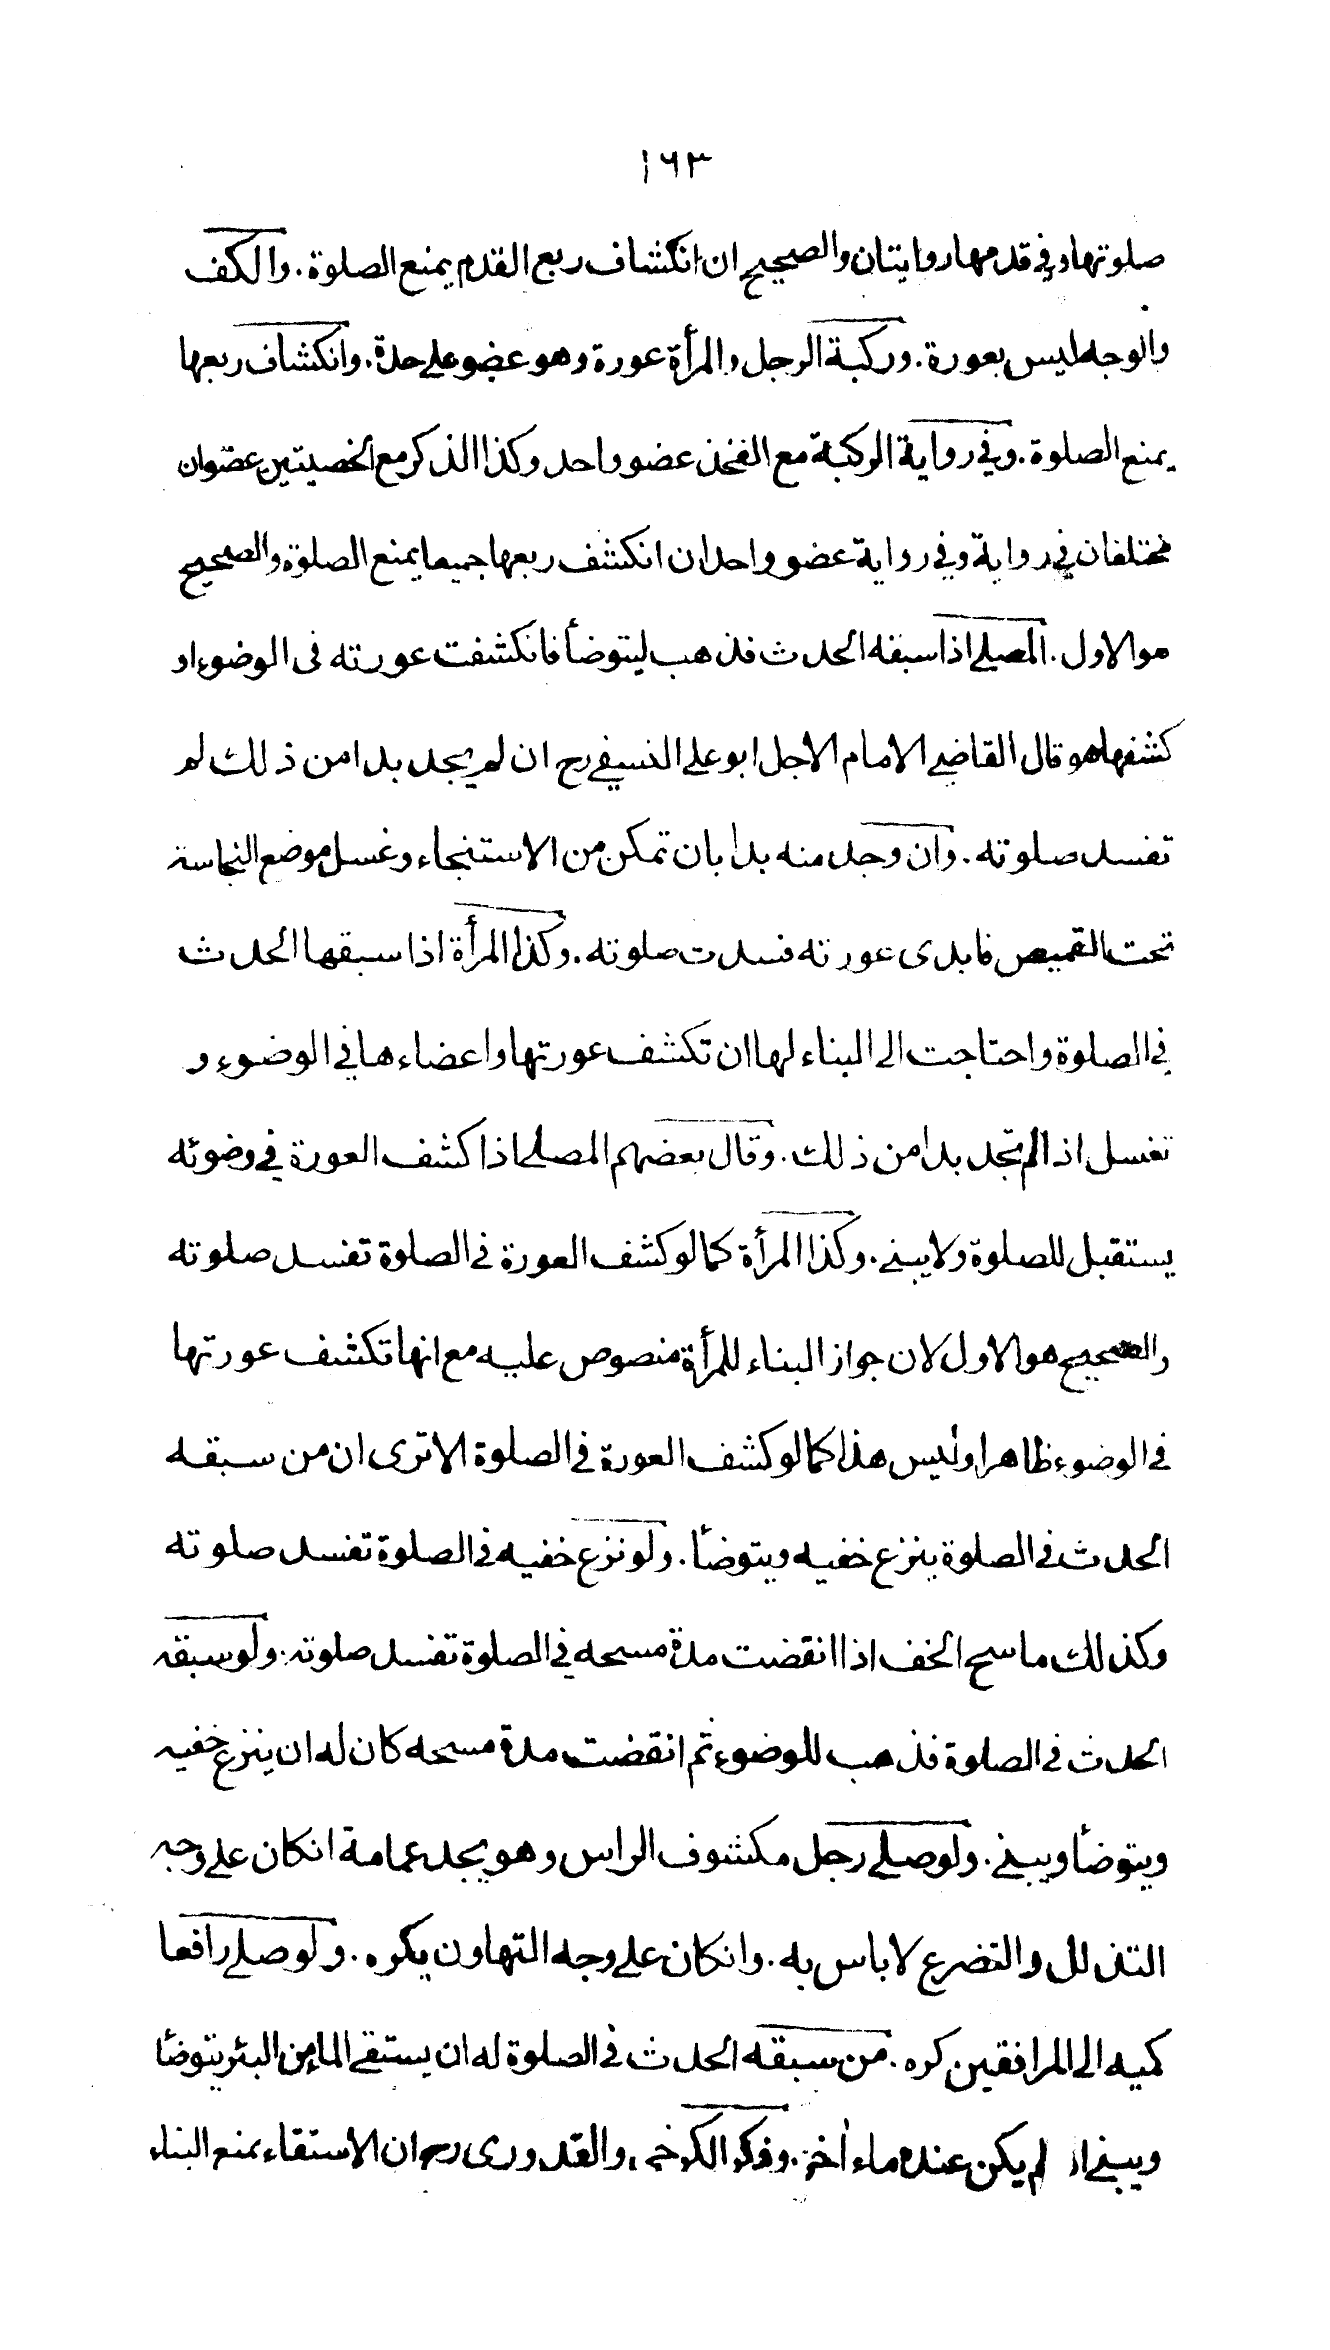 ١٦٣
صلوتها وفي قدمها روايتان والصحيح ان انكشاف ربع القدم يمنع الصلوة. والكف
والوجه ليس بعورة. وركبة الرجل والمرأة عورة وهو عضو على حدة. وانكشاف ربعها
يمنع الصلوة. وفي رواية الركبة مع الفخذ عضو واحد وكذا الذكر مع الخصيتين عضوان
مختلفان في رواية وفي رواية عضو واحد ان انكشف ربعها جميعا يمنع الصلوة والصحيح
هو الاول. المصلي اذا سبقه الحدث فذهب ليتوضأ فانكشفت عورته فى الوضوء او
كشفها هو قال القاضي الامام الاجل ابو علي النسفي رح ان لم يجد بدا من ذلك لم
تفسد صلوته. وان وجد منه بدا بان تمكن من الاستنجاء وغسل موضع النجاسة
تحت القميص فابدى عورته فسدت صلوته. وكذا المرأة اذا سبقها الحدث
في الصلوة واحتاجت الى البناء لها ان تكشف عورتها واعضاءها في الوضوء و
تغسل اذا لم تجد بدا من ذلك. وقال بعضهم المصلي اذا كشف العورة في وضوئه
يستقبل للصلوة ولا يبني. وكذا المرأة كما لو كشف العورة في الصلوة تفسد صلوته
والصحيح هو الاول لان جواز البناء للمرأة منصوص عليه مع انها تكشف عورتها
في الوضوء ظاهرا وليس هذا كما لو كشف العورة في الصلوة الا ترى ان من سبقه
الحدث في الصلوة ينزع خفيه ويتوضأ. ولو نزع خفيه في الصلوة تفسد صلوته
وكذلك ماسح الخف اذا انقضت مدة مسحه في الصلوة تفسد صلوته. ولو سبقه
الحدث في الصلوة فذهب للوضوء ثم انقضت مدة مسحه كان له ان ينزع خفيه
ويتوضأ ويبني. ولو صلى رجل مكشوف الراس وهو يجد عمامة انكان على وجه
التذلل والتضرع لا باس به. وانكان على وجه التهاون يكره. ولو صلى رافعا
كميه الى المرافقين كره. من سبقه الحدث في الصلوة له ان يستقي الماء من البئر يتوضأ
ويبني ان لم يكن عنده ماء أخر. وذكر الكرخي والقدوري رح ان الاستقاء يمنع البناء